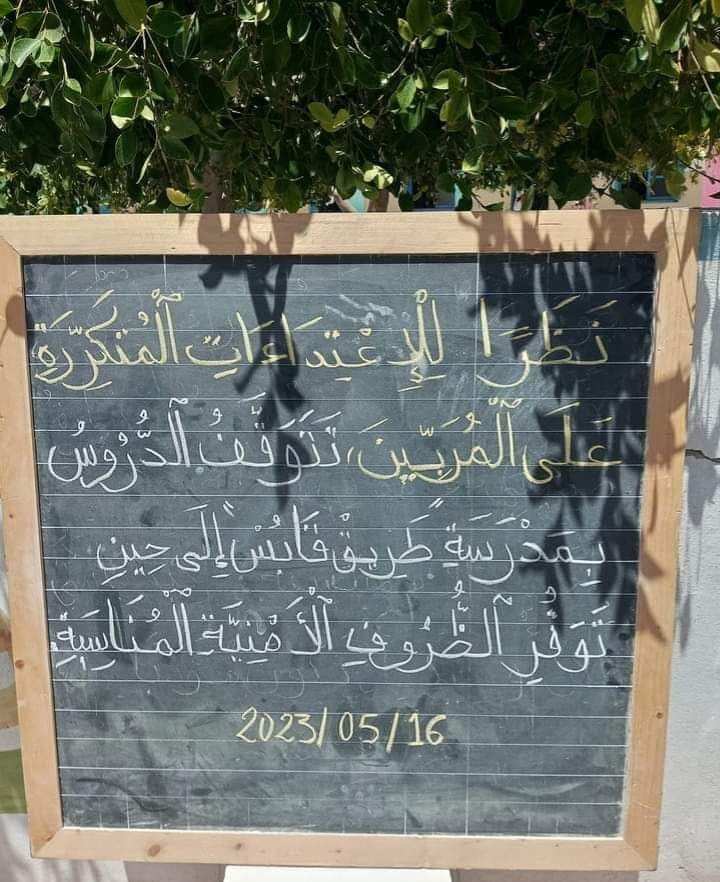 نَظَرًا لِلْإِعْتِدَاءَاتِ ٱلْمُتَكَرِّرَةِ
عَلَى ٱلْمُرَبِّينَ، تَتَوَقَّفُ ٱلدُّرُوسُ
بِمَدْرَسَةِ "طَرِيقْ قَابْسْ" إِلَى حِينِ
تَوَفُّرِ ٱلظُّرُوفِ ٱلْأَمْنِيَّةِ ٱلْمُنَاسِبَةِ
2023/05/16